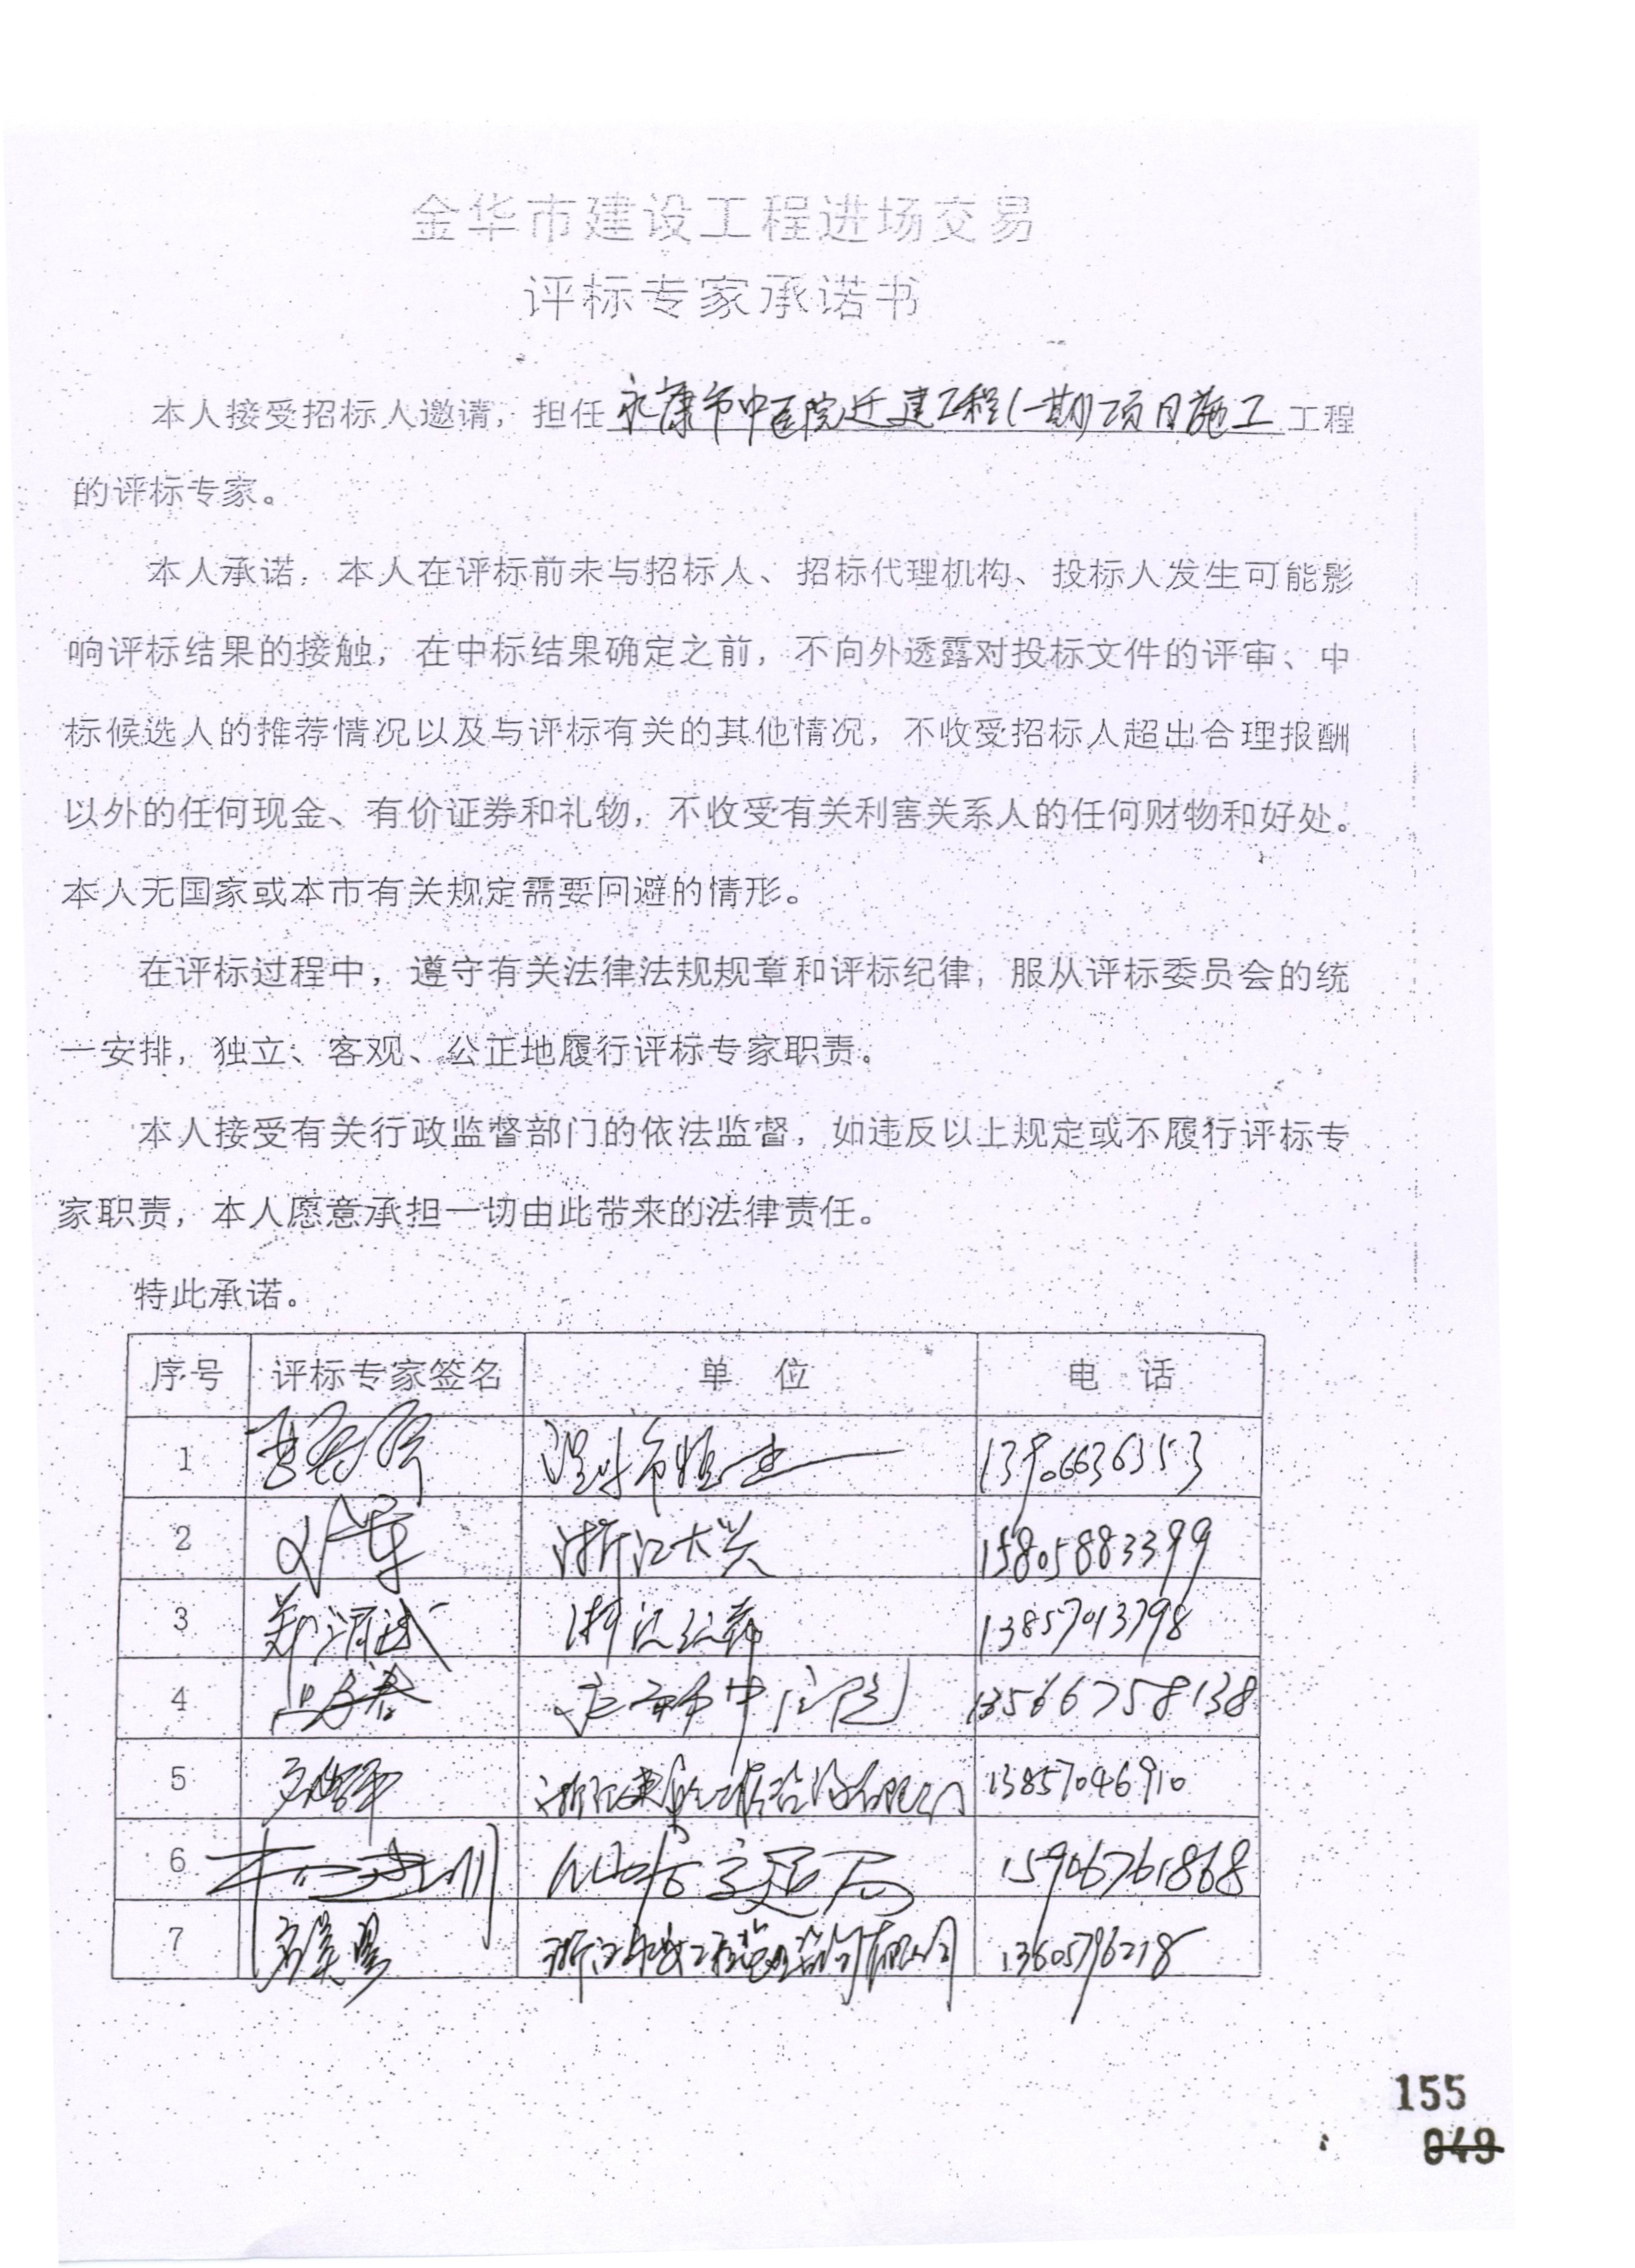 金华市建设工程进场交易
评标专家承诺书
本人接受招标人邀请，担任永康市中医院迁建工程(一期)项目施工工程
的评标专家。
本人承诺：本人在评标前未与招标人、招标代理机构、投标人发生可能影
响评标结果的接触，在中标结果确定之前，不向外透露对投标文件的评审、中
标候选人的推荐情况以及与评标有关的其他情况，不收受招标人超出合理报酬
以外的任何现金、有价证券和礼物，不收受有关利害关系人的任何财物和好处。
本人无国家或本市有关规定需要回避的情形。
在评标过程中，遵守有关法律法规规章和评标纪律，服从评标委员会的统
一安排，独立、客观、公正地履行评标专家职责。
本人接受有关行政监督部门的依法监督，如违反以上规定或不履行评标专
家职责，本人愿意承担一切由此带来的法律责任。
特此承诺。
序号 评标专家签名 单 位 电 话
1 13906636353
2 浙江大兴 15805883399
3 浙江 13857013798
4 13566758138
5 13857046910
6 15906761868
7 13605796218
155
049